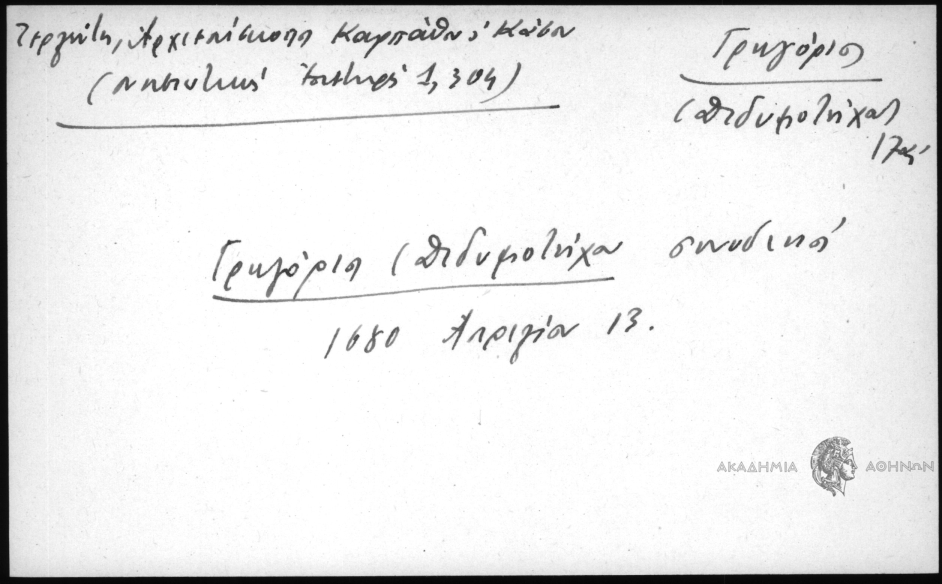 Ζερλέντη, Ἀρχιεπίσκοποι Καρπάθου & Κάσου
(νησιωτικὴ Ἐπετηρὶς 1, 304)
Γρηγόριος
(Διδυμοτείχου)
17ος
Γρηγόριος (Διδυμοτείχου συνοδικός
1680 Ἀπριλίου 13.
ΑΚΑΔΗΜΙΑ ΑΘΗΝΩΝ